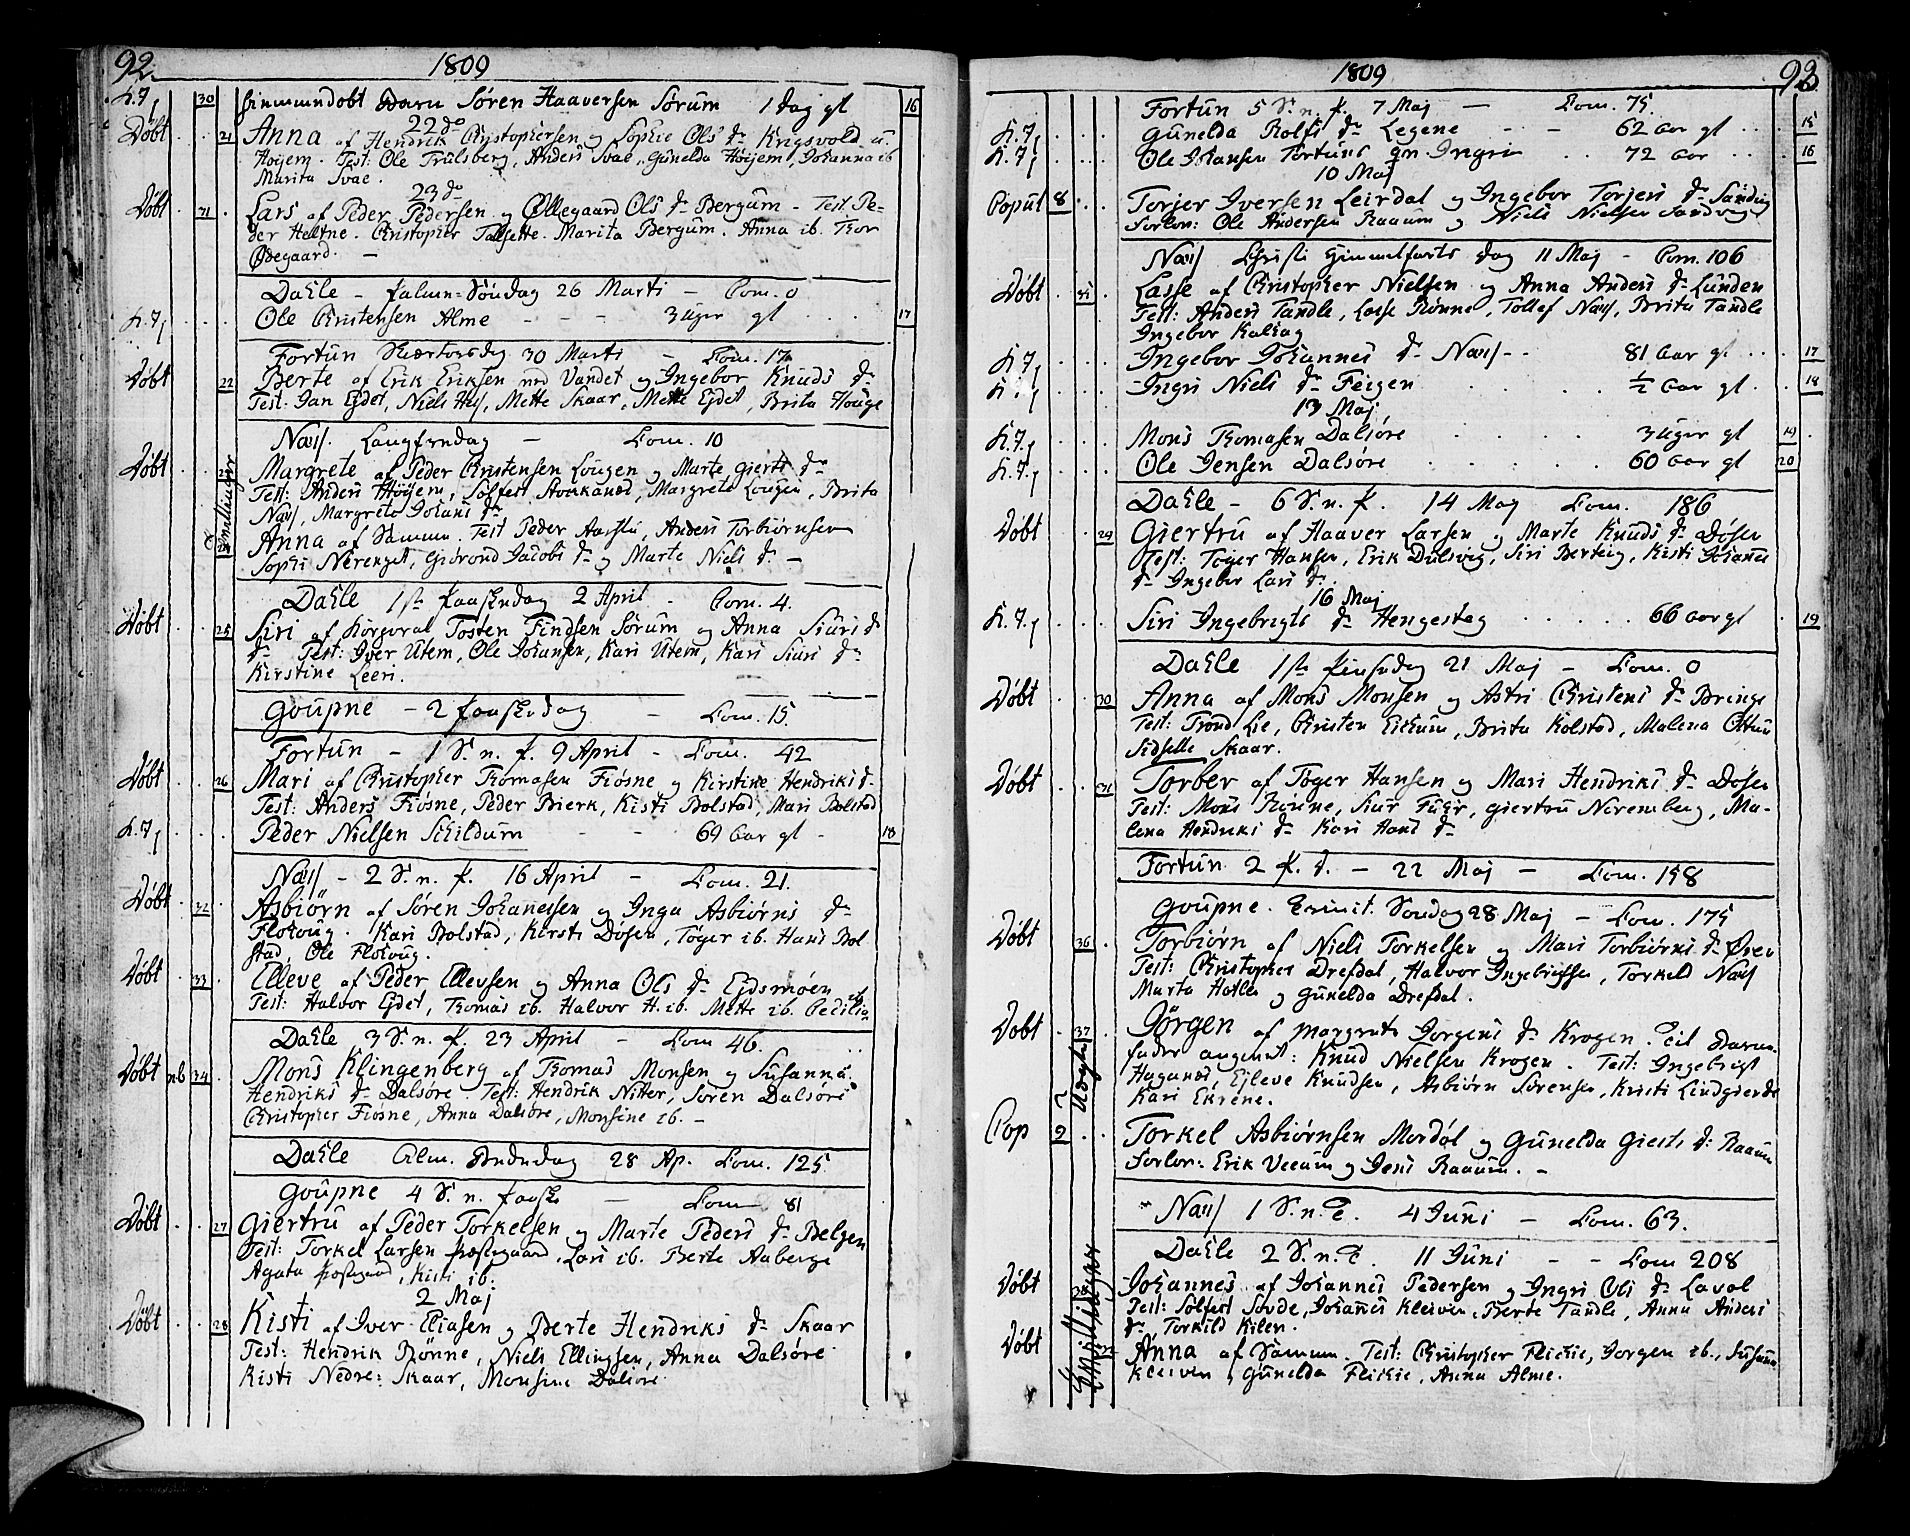 92.
1809
K.7 30 hiemmedøbt Barn Søren Haaversen Sørum 1 Dag gl 16
22 do
Døbt 21 Anna af Hendrik Christophersen og Sophie Ols D. Krigsvold u.
Høyem. Test: Ole Trulsberg, Anders Svae, Gunelda Høyem, Johanna ib
Marita Svae.
23 do
Døbt 31 Lars af Peder Pedersen og Øllegaard Ols D. Bergum - Test: Pe-
der Heltne. Christopher Talsette. Marita Bergum. Anna ib. Thor
Ødegaard. —
Dahle - Palme-Søndag 26 Marti - Com. 0
K.7 Ole Christensen Alme - - - 3 Uger gl 17
Fortun Skiertorsdag 30 Marti - Com. 17
Døbt 22 Berte af Erik Eriksen ved Vandet og Ingebor Knuds D.
Test: Jan Ejdet, Niels Hus, Mette Skaar, Mette Ejdet, Brita Houge
Næss. Langfredag - Com. 10
Døbt Margrete af Peder Christensen Lougen og Marte Gierts D.
Test: Anders Høyem, Solfest Stoukanæd, Margrete Lougen, Brita
Næss, Margrete Johans D.
Tvillinger
Anna af Samme. Test Peder Aasthu, Anders Torbiørnsen
Sophi Nerenget, Giørond Jacobs D. og Marte Niels D. —
Dahle 1ste Paaskedag 2 April - Com. 4.
Døbt 25 Siri af Korporal Tosten Findsen Sørum og Anna Siurs D
D. Test: Iver Utem, Ole Johansen, Kari Utem, Kari Siurs D.
Kirstine Leeri.
Goupne - 2 Paaskedag - Com. 15.
Fortun - 1 S. n. P. 9 April - Com. 42
Døbt 26 Mari af Christopher Thomasen Fiøsne og Kirstine Hendriks D.
Test: Anders Fiøsne, Peder Bierk, Kisti Bolstad, Mari Bolstad
K.7 Peder Nielsen Schildum - - 69 Aar gl - 18
Næss - 2 S. n. P. 16 April - Com. 21.
Døbt 32 Asbiørn af Søren Johanessen og Inga Asbiørns D.
Flohoug. Kari Bolstad, Kirsti Døsen, Tøger ib. Hans Bol
stad, Ole Flohoug.
Døbt 33 Elleve af Peder Ellevsen og Anna Ols D. Ejdsmøen
Test: Halvor Ejdet, Thomas ib. Halvor H. ib. Mette ib. Cecilia ib
Dahle 3 S. n. P. 23 April - Com 46.
Døbt nb 34 Mons Klingenberg af Thomas Monsen og Susanna
Hendriks D. Dalsøre. Test: Hendrik Nitter, Søren Dalsøre
Christopher Fiøsne, Anna Dalsøre, Monsine ib. —
Dahle Alm. Bededag 28 Ap. Com. 125
Goupne 4 S. n. Paaske - Com 81
Døbt 27 Giertru af Peder Torkelsen og Marte Peders D. Belgen
Test: Torkel Larsen Prestegaard, Lars ib. Berte Aaberge
Agata Prestegaard, Kisti ib.
2 Maj
Døbt 28 Kisti af Iver Eliasen og Berte Hendriks D. Skaar
Test: Hendrik Rønne, Niels Ellingsen, Anna Dalsøre
Kisti Nedre: Skaar, Monsine Dalsøre
93
1809
Fortun 5 S. n. P. 7 Maj - Com. 75.
K.7 Gunelda Rolfs D. Legene - - 62 Aar gl 15
K.7 Ole Johansen Fortuns gm. Ingri 72 Aar 16
10 Maj
Copul 8 Torjer Iversen Leirdal og Ingebor Torjers D. Sandvig
Forlov: Ole Andersen Raaum og Niels Nielsen Sandvig
Næss Christi Himmelfarts Dag 11 Maj - Com. 106
Døbt 35 Lasse af Christopher Nielsen og Anna Anders D. Lunden
Test: Anders Tandle, Lasse Rønne, Tollef Næss, Brita Tandle
Ingebor Kalhag
K.7 Ingebor Johannes D. Næss - 81 Aar gl 17
K.7 Ingri Niels D. Feigen ½ Aar gl 18
13 Maj
K.7 Mons Thomasen Dalsøre 3 Uger gl 19
K.7 Ole Jensen Dalsøre 60 Aar gl 20
Dahle - 6 S. n. P. 14 Maj Com. 186
Døbt 29 Giertru af Haaver Larsen og Marte Knuds D. Døsen
Test: Tøger Hansen, Erik Dulsvig, Siri Berteig, Kisti Johannes
D. Ingebor Lars D.
16 Maj
K.7 Siri Ingebrigts D. Hengestag 66 Aar gl 19
Dahle 1ste Pinsedag 21 Maj - Com. 0
Døbt 30 Anna af Mons Monsen og Astri Christens D. Bringe
Test: Trond Lie, Christen Eikum, Brita Kolstad, Malena Ottum
Sidselle Skaar.
Døbt 31 Torber af Tøger Hansen og Mari Hendriks D. Døsen
Test: Mons Rønne, Siur Fuhr, Giertru Nerenberg, Ma-
lena Hendriks D. Kari Hans D.
Fortun 2 P. D. - 22 Maj - Com. 158
Goupne. Trinit. Søndag 28 Maj - Com. 175
Døbt 36 Torbiørn af Niels Torkelsen og Mari Torbiørns D. Øren
Test: Christopher Drefdal, Halvor Ingebrigtsen, Torkeld Næss
Marta Hatlen og Gunelda Drefdal.
Døbt 37 Uægte Jørgen af Margrete Jorgens D. Krogen. Til Barne-
fader angivet: Knud Nielsen Krogen. Test: Ingebrigt
Haganæs, Ejleve Knudsen, Asbiørn Sørensen, Kristi Lindgierde
Kari Ekrene.
Cop 9 Torkel Asbiørnsen Mordøl og Gunelda Gierts D: Raaum
Forlov: Erik Veeum og Jens Raaum. —
Næss 1 S. n. T. 4 Juni - Com. 63.
Dahle 2 S. n. T. 11 Juni - - Com 208
Døbt Johannes af Johannes Pedersen og Ingri Ols D. Lavol
Test: Solfest Søvde, Johannes Kleiven, Berte Tandle, Anna Anders
D. Torkild Kilen.
Tvillinger
Døbt Anna af Samme. Test: Christopher Flickie, Jorgen ib., Susanne
Kleiven, Gunelda Flickie, Anna Alme.